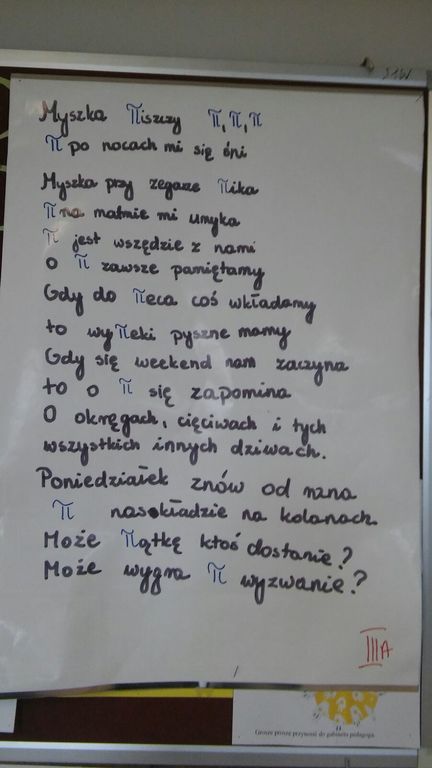 S1W
Myszka πiszczy π, π, π
π po nocach mi się śni
Myszka przy zegarze πika
π na matmie mi umyka
π jest wszędzie z nami
o π zawsze pamiętamy
Gdy do πeca coś wkładamy
to wyπeki pyszne mamy
Gdy się weekend nam zaczyna
to o π się zapomina
O okręgach, cięciwach i tych
wszystkich innych dziwach.
Poniedziałek znów od rana
π nas kładzie na kolanach.
Może πątkę ktoś dostanie?
Może wygra π wyzwanie?
III A
Grosze proszę przynosić do gabinetu pedagoga